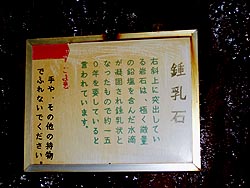 鍾乳石
右斜上に突出してい
る岩石は、極く微量
の鉛塩を含んだ水滴
が凝固され鍾乳状と
なったもので約一五
〇年を要していると
言われています。
手や、その他の持物
でふれないでください